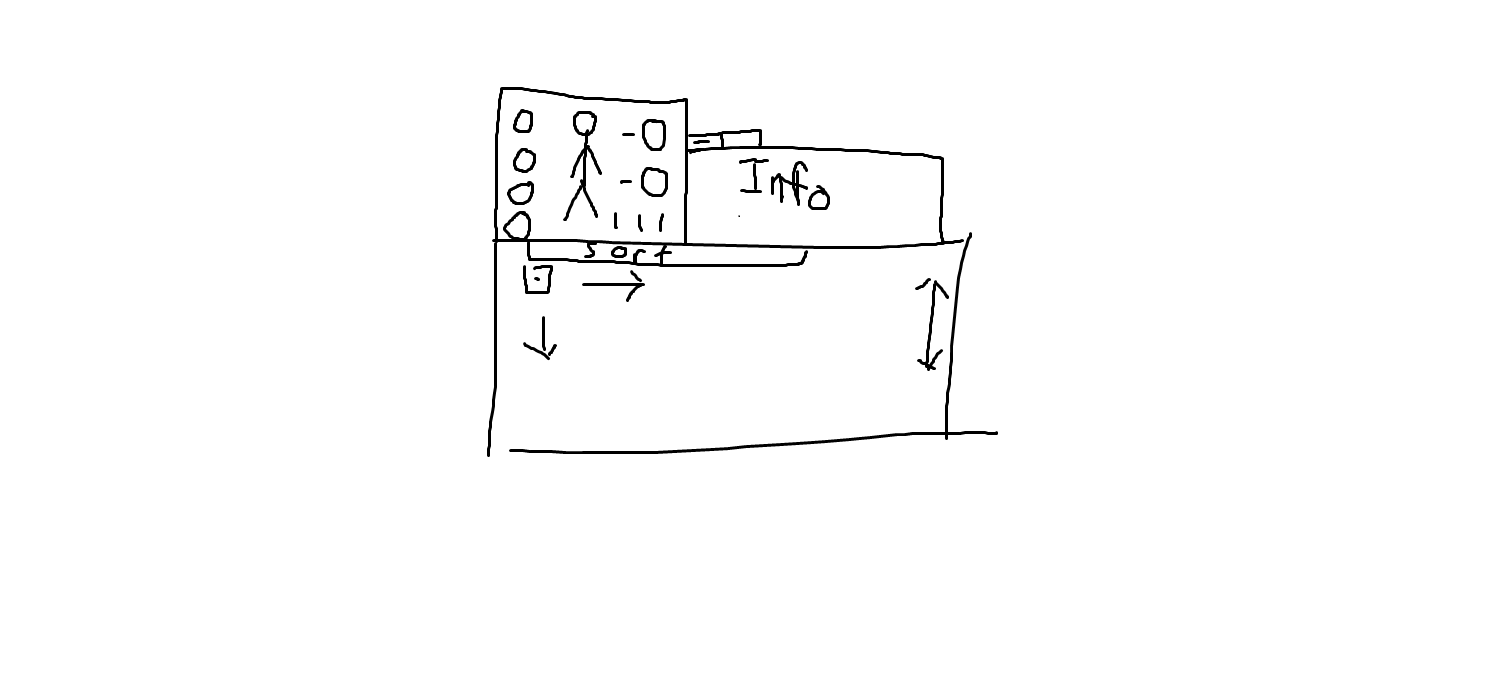 Info
sort